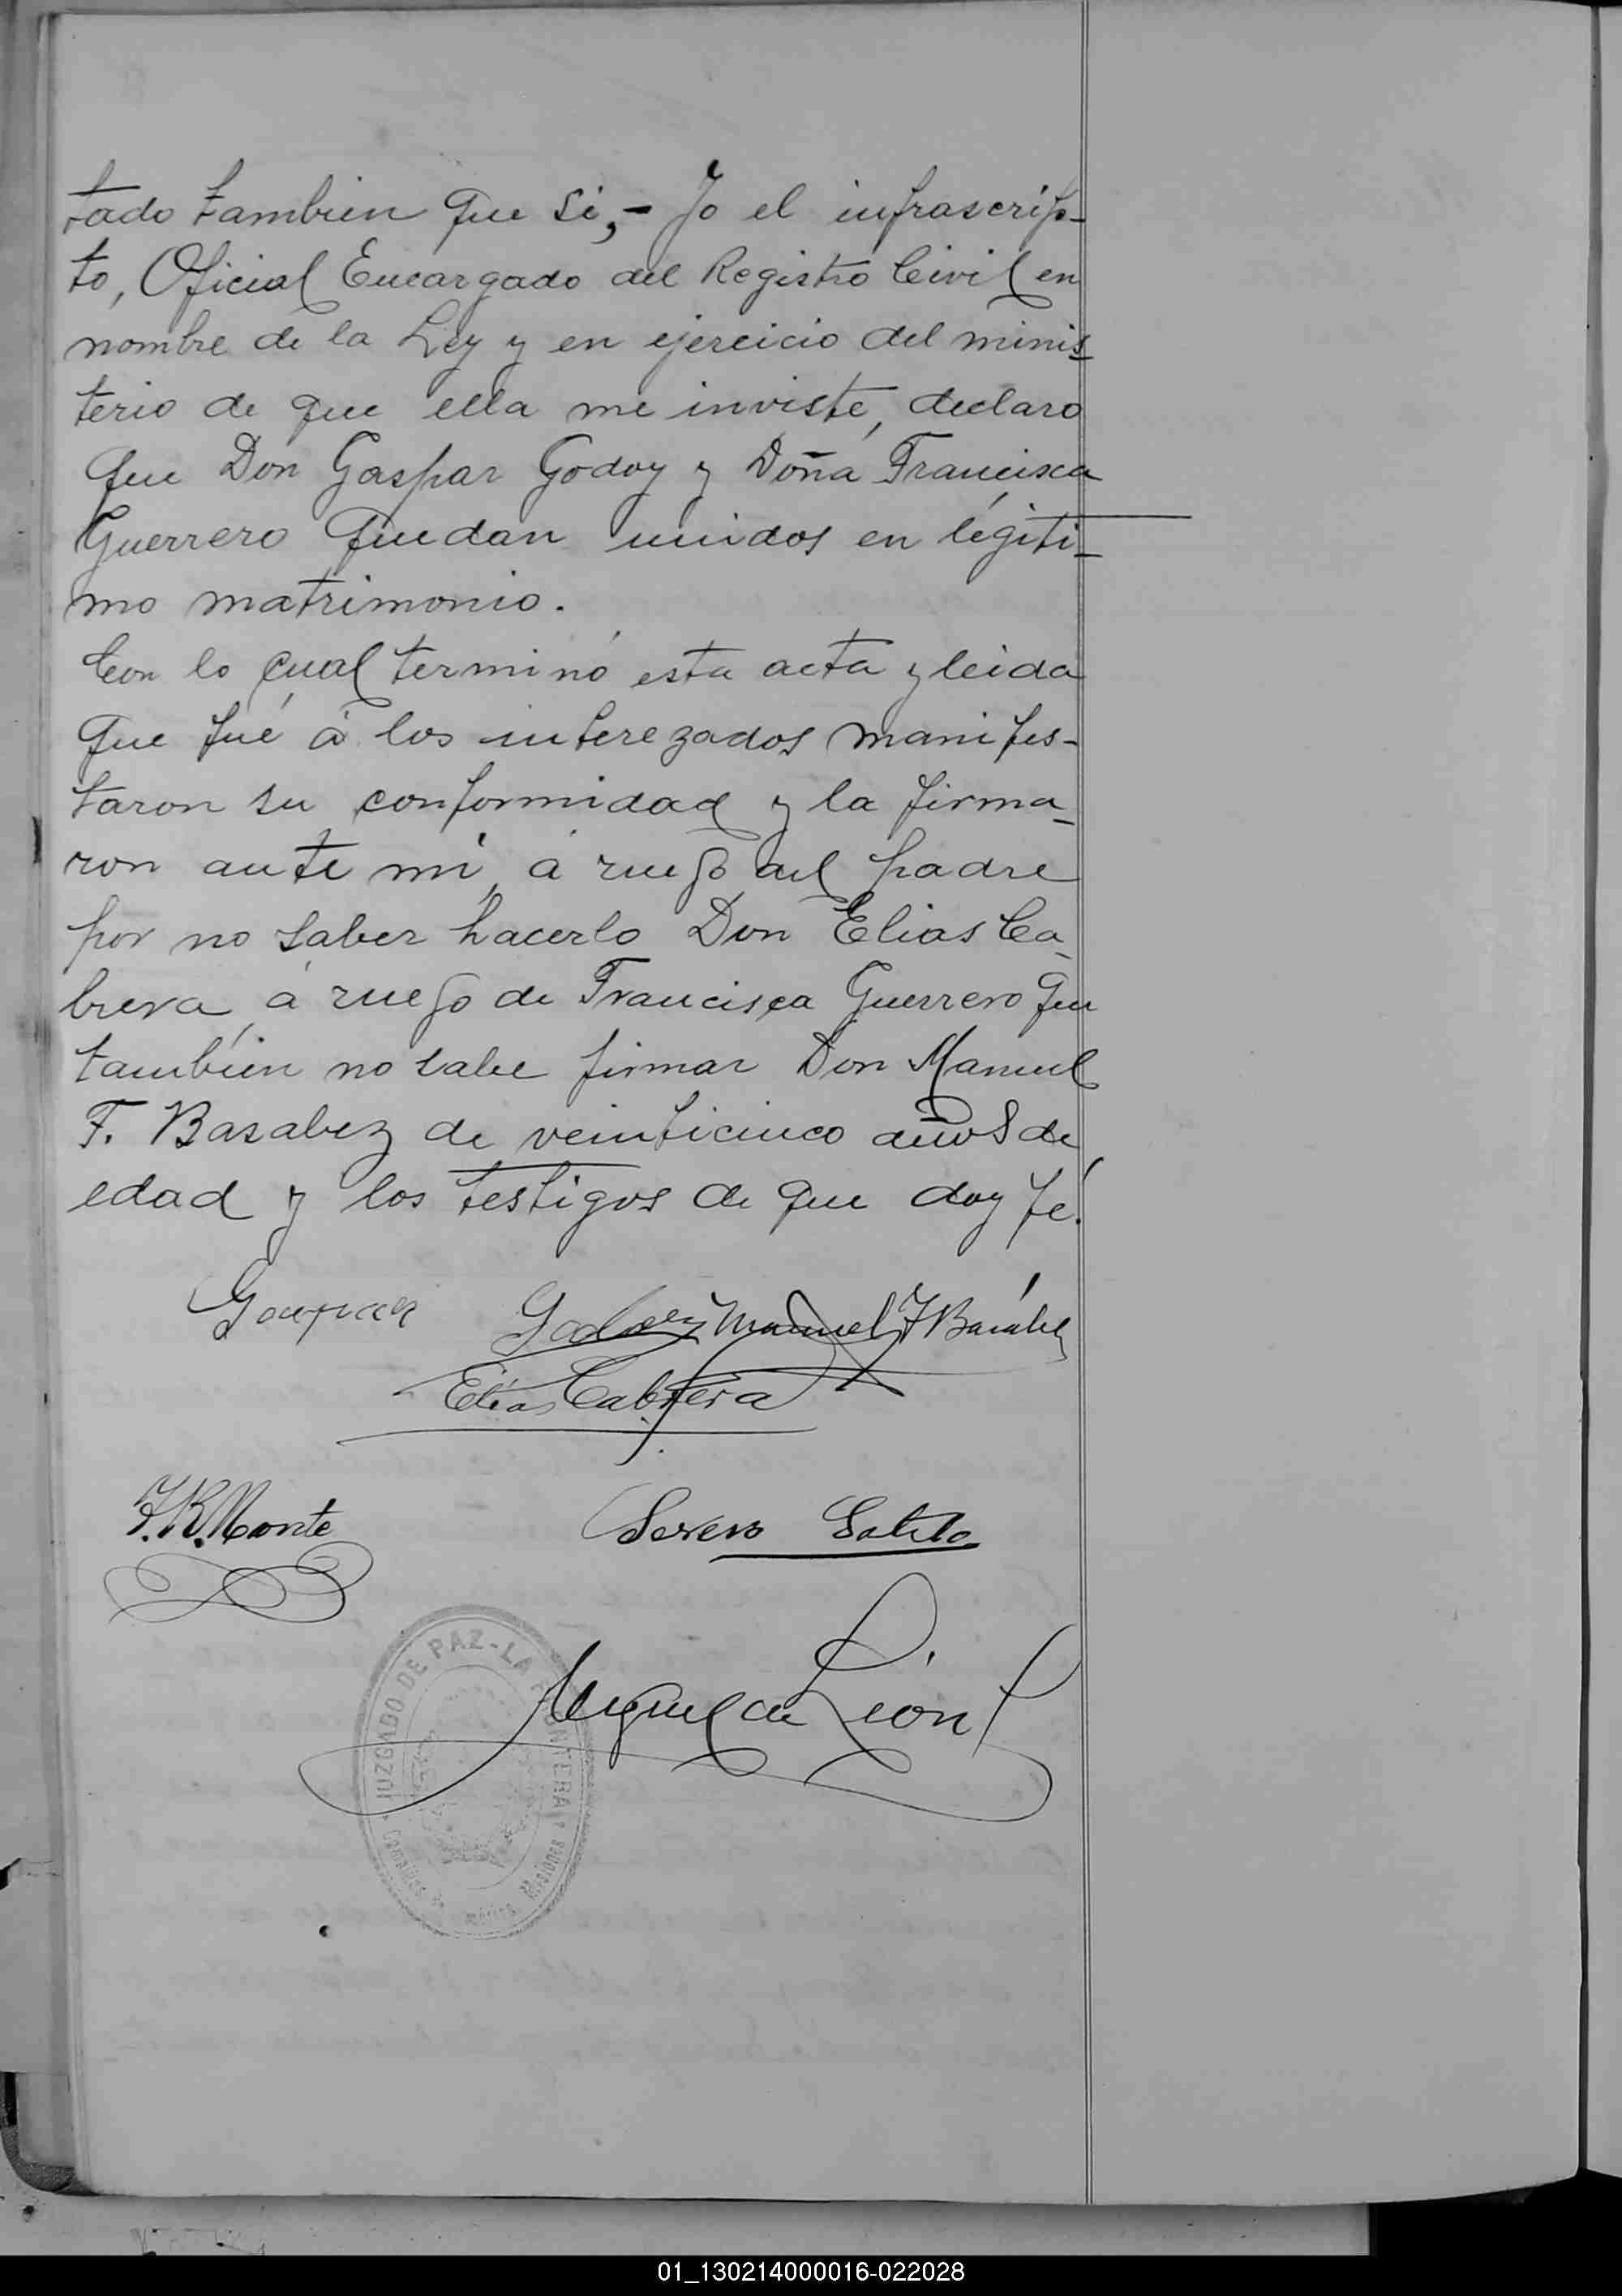 tado tambien que si,- Yo el infrascrip-
to, Oficial Encargado del Registro Civil en
nombre de la Ley y en ejercicio del minis-
terio de que ella me inviste, declaro
que Don Gaspar Godoy y Doña Francisca
Guerrero quedan unidos en légiti-
mo matrimonio.
Con lo cual terminó esta acta y leida
que fué á los interezados manifes-
taron su conformidad y la firma-
ron ante mi, á ruego del padre
por no saber hacerlo Don Elias Ca-
brera, á ruego de Francisca Guerrero que
tambien no sabe firmar Don Manuel
F. Basabez de veinticinco años de
edad y los testigos de que doy fé.
Gaspar Godoy Manuel F Basabe
Elias Cabrera
Severo
Miguel de León
JUZGADO DE PAZ - LA FRONTERA
Misiones
01_130214000016-022028